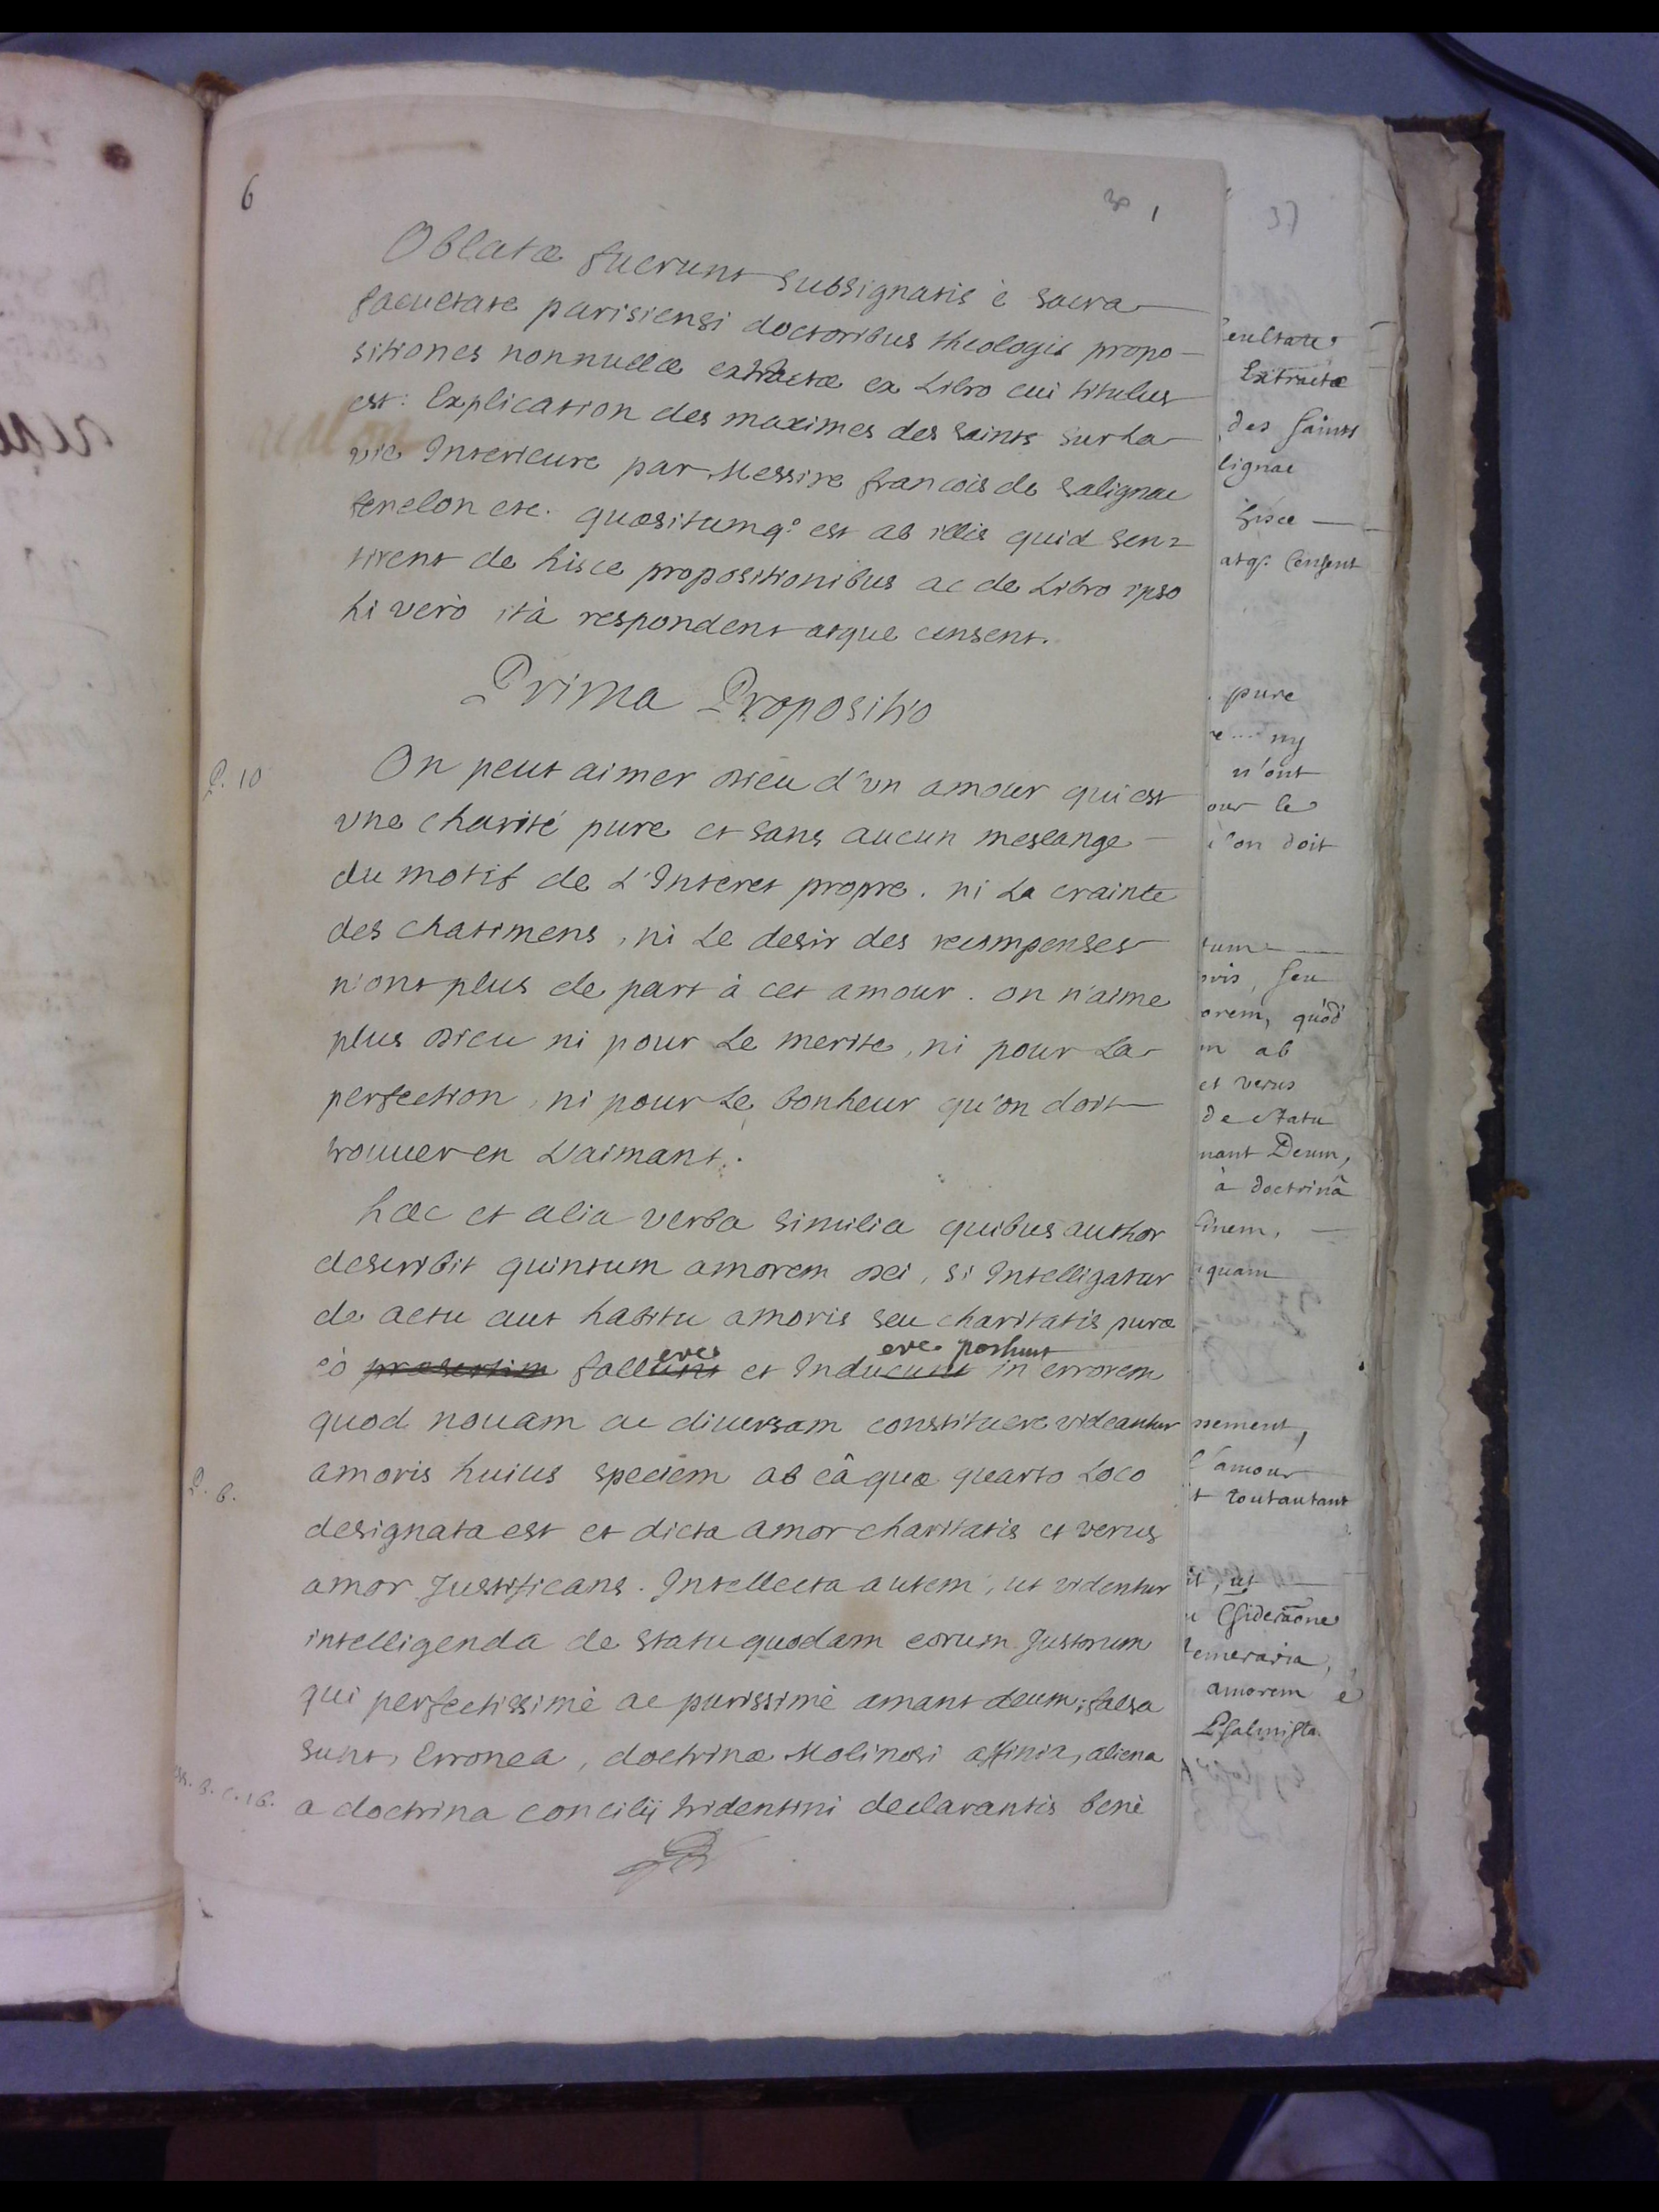 6
1
37
Oblatæ fuerunt subsignatis è sacra
facultate parisiensi doctoribus theologis propo-
sitiones nonnullæ extractæ ex Libro cui titulus
est: Explication des maximes des saints sur La
vie Interieure par Messire francois de salignac
fenelon etc. quæsitumq. est ab illis quid sen=
tirent de hisce propositionibus ac de Libro ipso
hi verò ità respondent atque censent.
Prima Propositio
P. 10
On peut aimer Dieu d'vn amour qui est
vne charité pure et sans aucun meslange
du motif de L'Interet propre. ni La crainte
des chatimens, ni Le desir des recompenses
n'ont plus de part à cet amour. on n'aime
plus Dieu ni pour Le merite, ni pour La
perfection, ni pour Le bonheur qu'on doit
trouuer en L'aimant.
hæc et alia verba similia quibus author
describit quintum amorem Dei, si Intelligatur
de actu aut habitu amoris seu charitatis puræ
ere ere possunt
eò præsertim fallunt et Inducunt in errorem
quod nouam ac diuersam constituere videantur
P. 6.
amoris huius speciem ab eâ quæ quarto Loco
designata est et dicta amor charitatis et verus
amor Justificans. Intellecta autem, ut videntur
intelligenda de statu quodam eorum Justorum
qui perfectissimè ac purissimè amant deum; falsa
sunt, Erronea, doctrinæ Molinosi affinia, aliena
a doctrina concilij tridentini declarantis benè
cultate
Extractæ
des saints
lignac
hisce
atq. Censent
pure
ny
n'ont
our le
l'on doit
tum
oris, seu
orem, quòd
m ab
et verus
de statu
mant Deum,
à doctrinâ
finem,
quam
nement,
l'amour
t toutautant
it, ut
temeraria,
amorem è
Psalmista